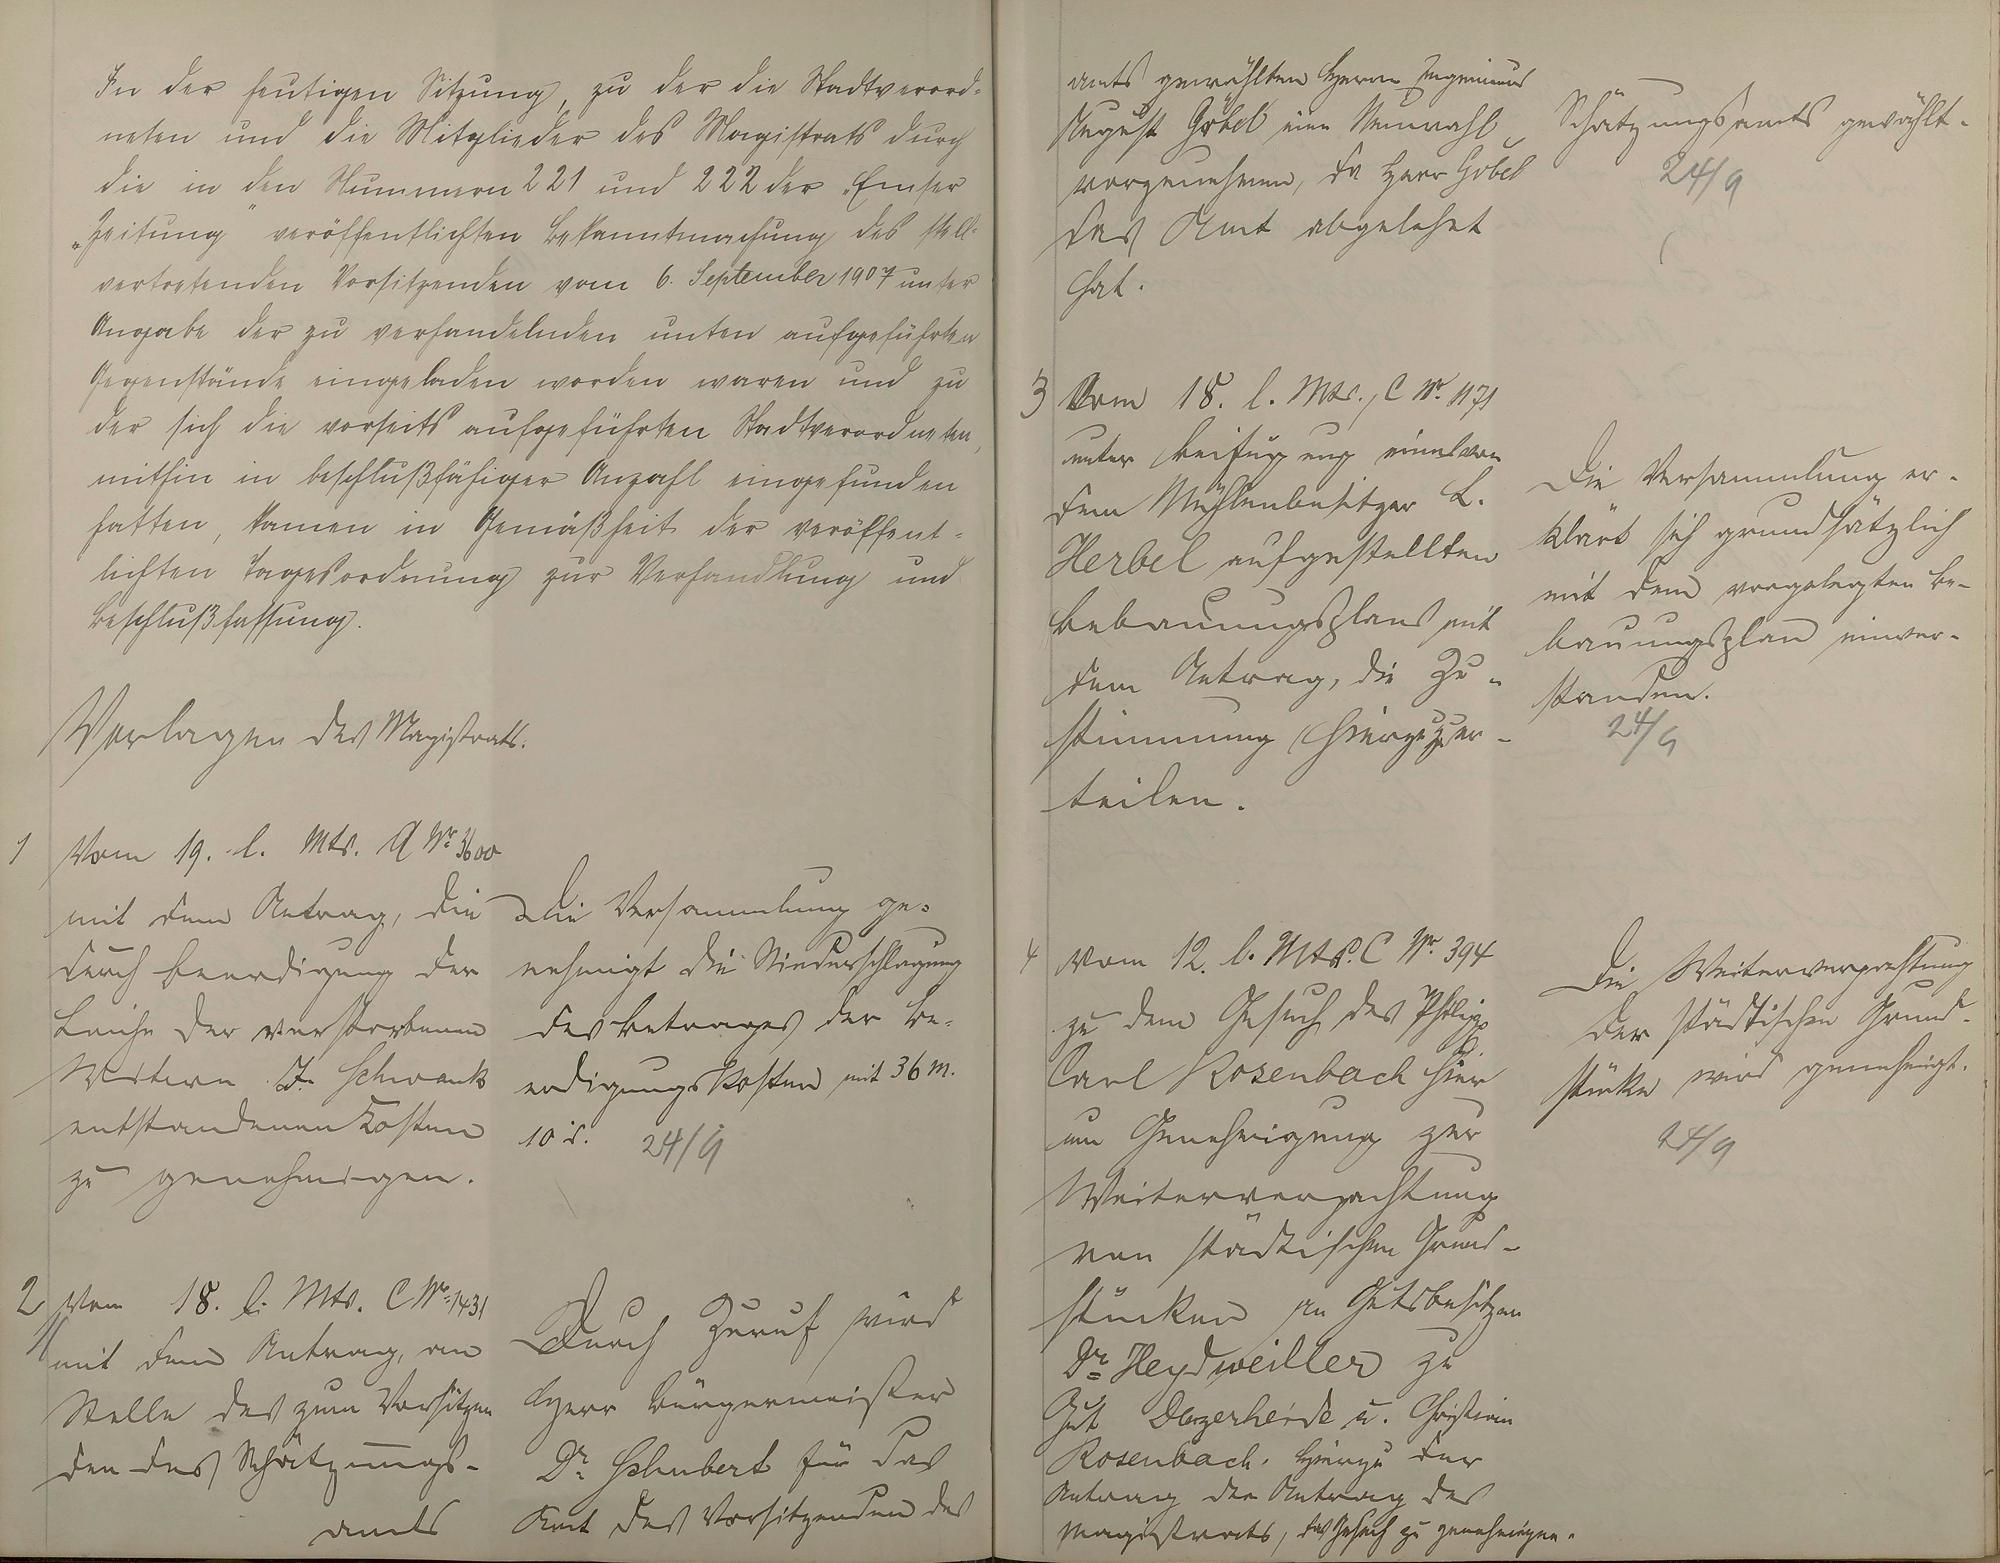 In der heutigen Sitzung, zu der die Stadtverord-
neten und die Mitglieder des Magistrats durch
die in den Nummern 221 und 222 der „Emser
Zeitung" veröffentlichten Bekanntmachung des stell-
vertretenden Vorsitzenden vom 6. September 1907 unter
Angabe der zu verhandelnden unten aufgeführten
Gegenstände eingeladen worden waren und zu
der sich die vorseits aufgeführten Stadtverordneten,
mithin in beschlußfähiger Anzahl eingefunden
hatten, kamen in Gemäßheit der veröffent-
lichten Tagesordnung zur Verhandlung und
Beschlußfassung.
Vorlagen des Magistrats.
1 Vom 19. l. Mts. A Nr. 3600
mit dem Antrag, die
durch Beerdigung der
Leiche der verstorbenen
J. Schwank
entstandenen Kosten
zu genehmigen.
Die Versammlung ge-
nehmigt die Niederschlagung
des Betrages der Be-
erdigungskosten mit 36 M.
10 d.
24/9
2 Vom 18. l. Mts. C Nr. 1431
mit dem Antrag, an
Stelle des zum Vorsitzen
den des Schätzungs-
amts
Durch Zuruf wird
Herr Bürgermeister
Dr. Schubert für das
Amt des Vorsitzenden des
amts gewählten Herrn Ingenieurs
August Göbel eine Neuwahl
vorzunehmen, da Herr Göbel
das Amt abgelehnt
hat.
Schätzungsamts gewählt.
24/9
3 Vom 18. l. Mts., C Nr. 1171
unter Beifügung eines von
dem Mühlenbesitzer L.
Herbel aufgestellten
Bebauungsplans mit
dem Antrag, die Zu-
stimmung hierzu zu er-
teilen.
Die Versammlung er-
klärt sich grundsätzlich
mit dem vorgelegten Be-
bauungsplan einver-
standen.
24/9
4 Vom 12. l. Mts. C Nr. 394
zu dem Gesuch des Philipp
Carl Rosenbach hier
um Genehmigung zur
Weiterverpachtung
von städtischen Grund-
stücken an Gutsbesitzer
Dr. Heydweiller zu
Gut Denzerheide u. Christian
Rosenbach. Hierzu der
Antrag der Antrag des
Magistrats, das Gesuch zu genehmigen.
Die Weiterverpachtung
der städtischen Grund-
stücke wird genehmigt.
24/9